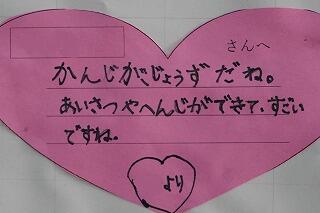 さんへ
かんじがじょうずだね。
あいさつやへんじができて、すごい
ですね。
より